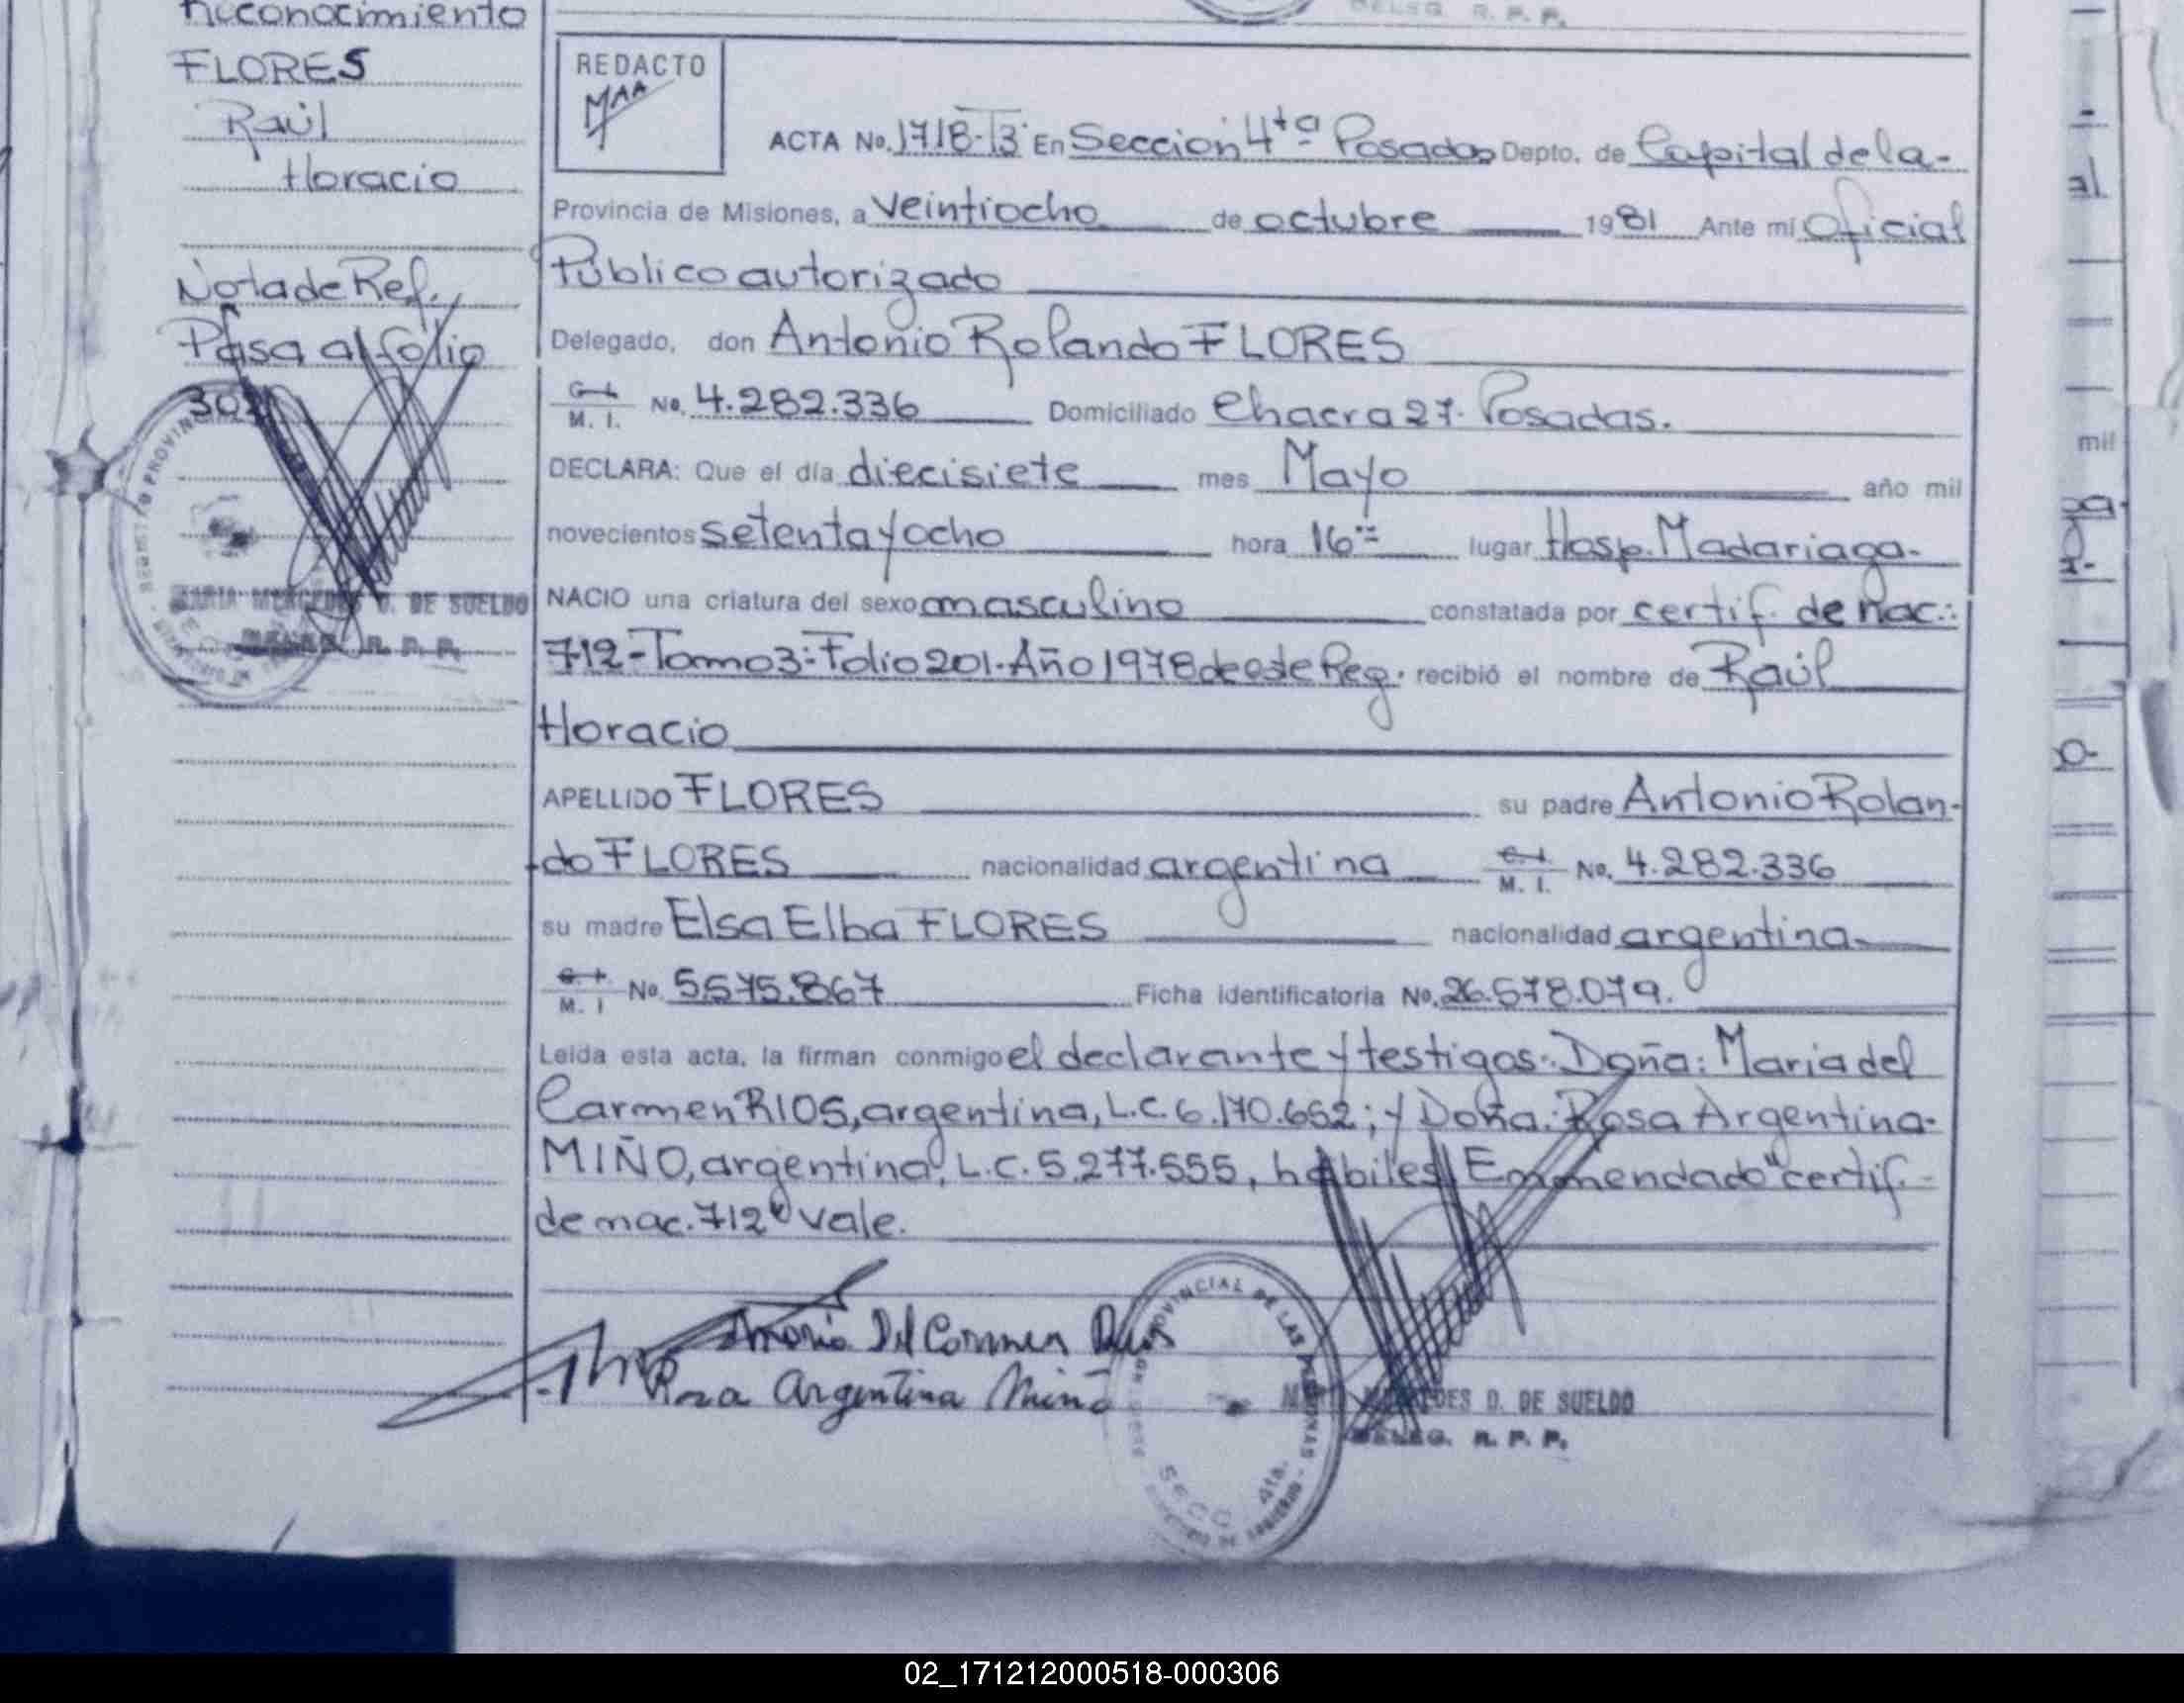 Reconocimiento
FLORES
Raúl
Horacio
Nota de Ref.
Pasa al folio
302
MARIA MERCEDES D. DE SUELDO
DELEG. R. P. P.
DELEG. R. P. P.
REDACTO
MAA
ACTA No. 1718-T3 En Sección 4ta Posadas Depto. de Capital de la-
Provincia de Misiones, a veintiocho de octubre 1981 Ante mí Oficial
Público autorizado
Delegado, don Antonio Rolando FLORES
C. I. / M. I. No. 4.282.336 Domiciliado Chacra 27. Posadas.
DECLARA: Que el día diecisiete mes Mayo año mil
novecientos setenta y ocho hora 16 lugar Hosp. Madariaga-
NACIO una criatura del sexo masculino constatada por certif. de nac.:
712-Tomo 3-Folio 201-Año 1978 de este Reg. recibió el nombre de Raúl
Horacio
APELLIDO FLORES su padre Antonio Rolan-
do FLORES nacionalidad argentina C. I. / M. I. No. 4.282.336
su madre Elsa Elba FLORES nacionalidad argentina
C. I. / M. I No. 5.575.867 Ficha identificatoria No. 26.578.079.
Leída esta acta, la firman conmigo el declarante y testigos: Doña: María del
Carmen RIOS, argentina, L.C. 6.170.652; y Doña: Rosa Argentina-
MIÑO, argentina, L.C. 5.277.555, hábiles Emmendado "certif.-
de nac. 712" vale.
Maria Del Carmen Rios
Rosa Argentina Miño
PROVINCIAL DE LAS PERSONAS
SECC. 4ta.
MERCEDES D. DE SUELDO
DELEG. R. P. P.
mil
02_171212000518-000306